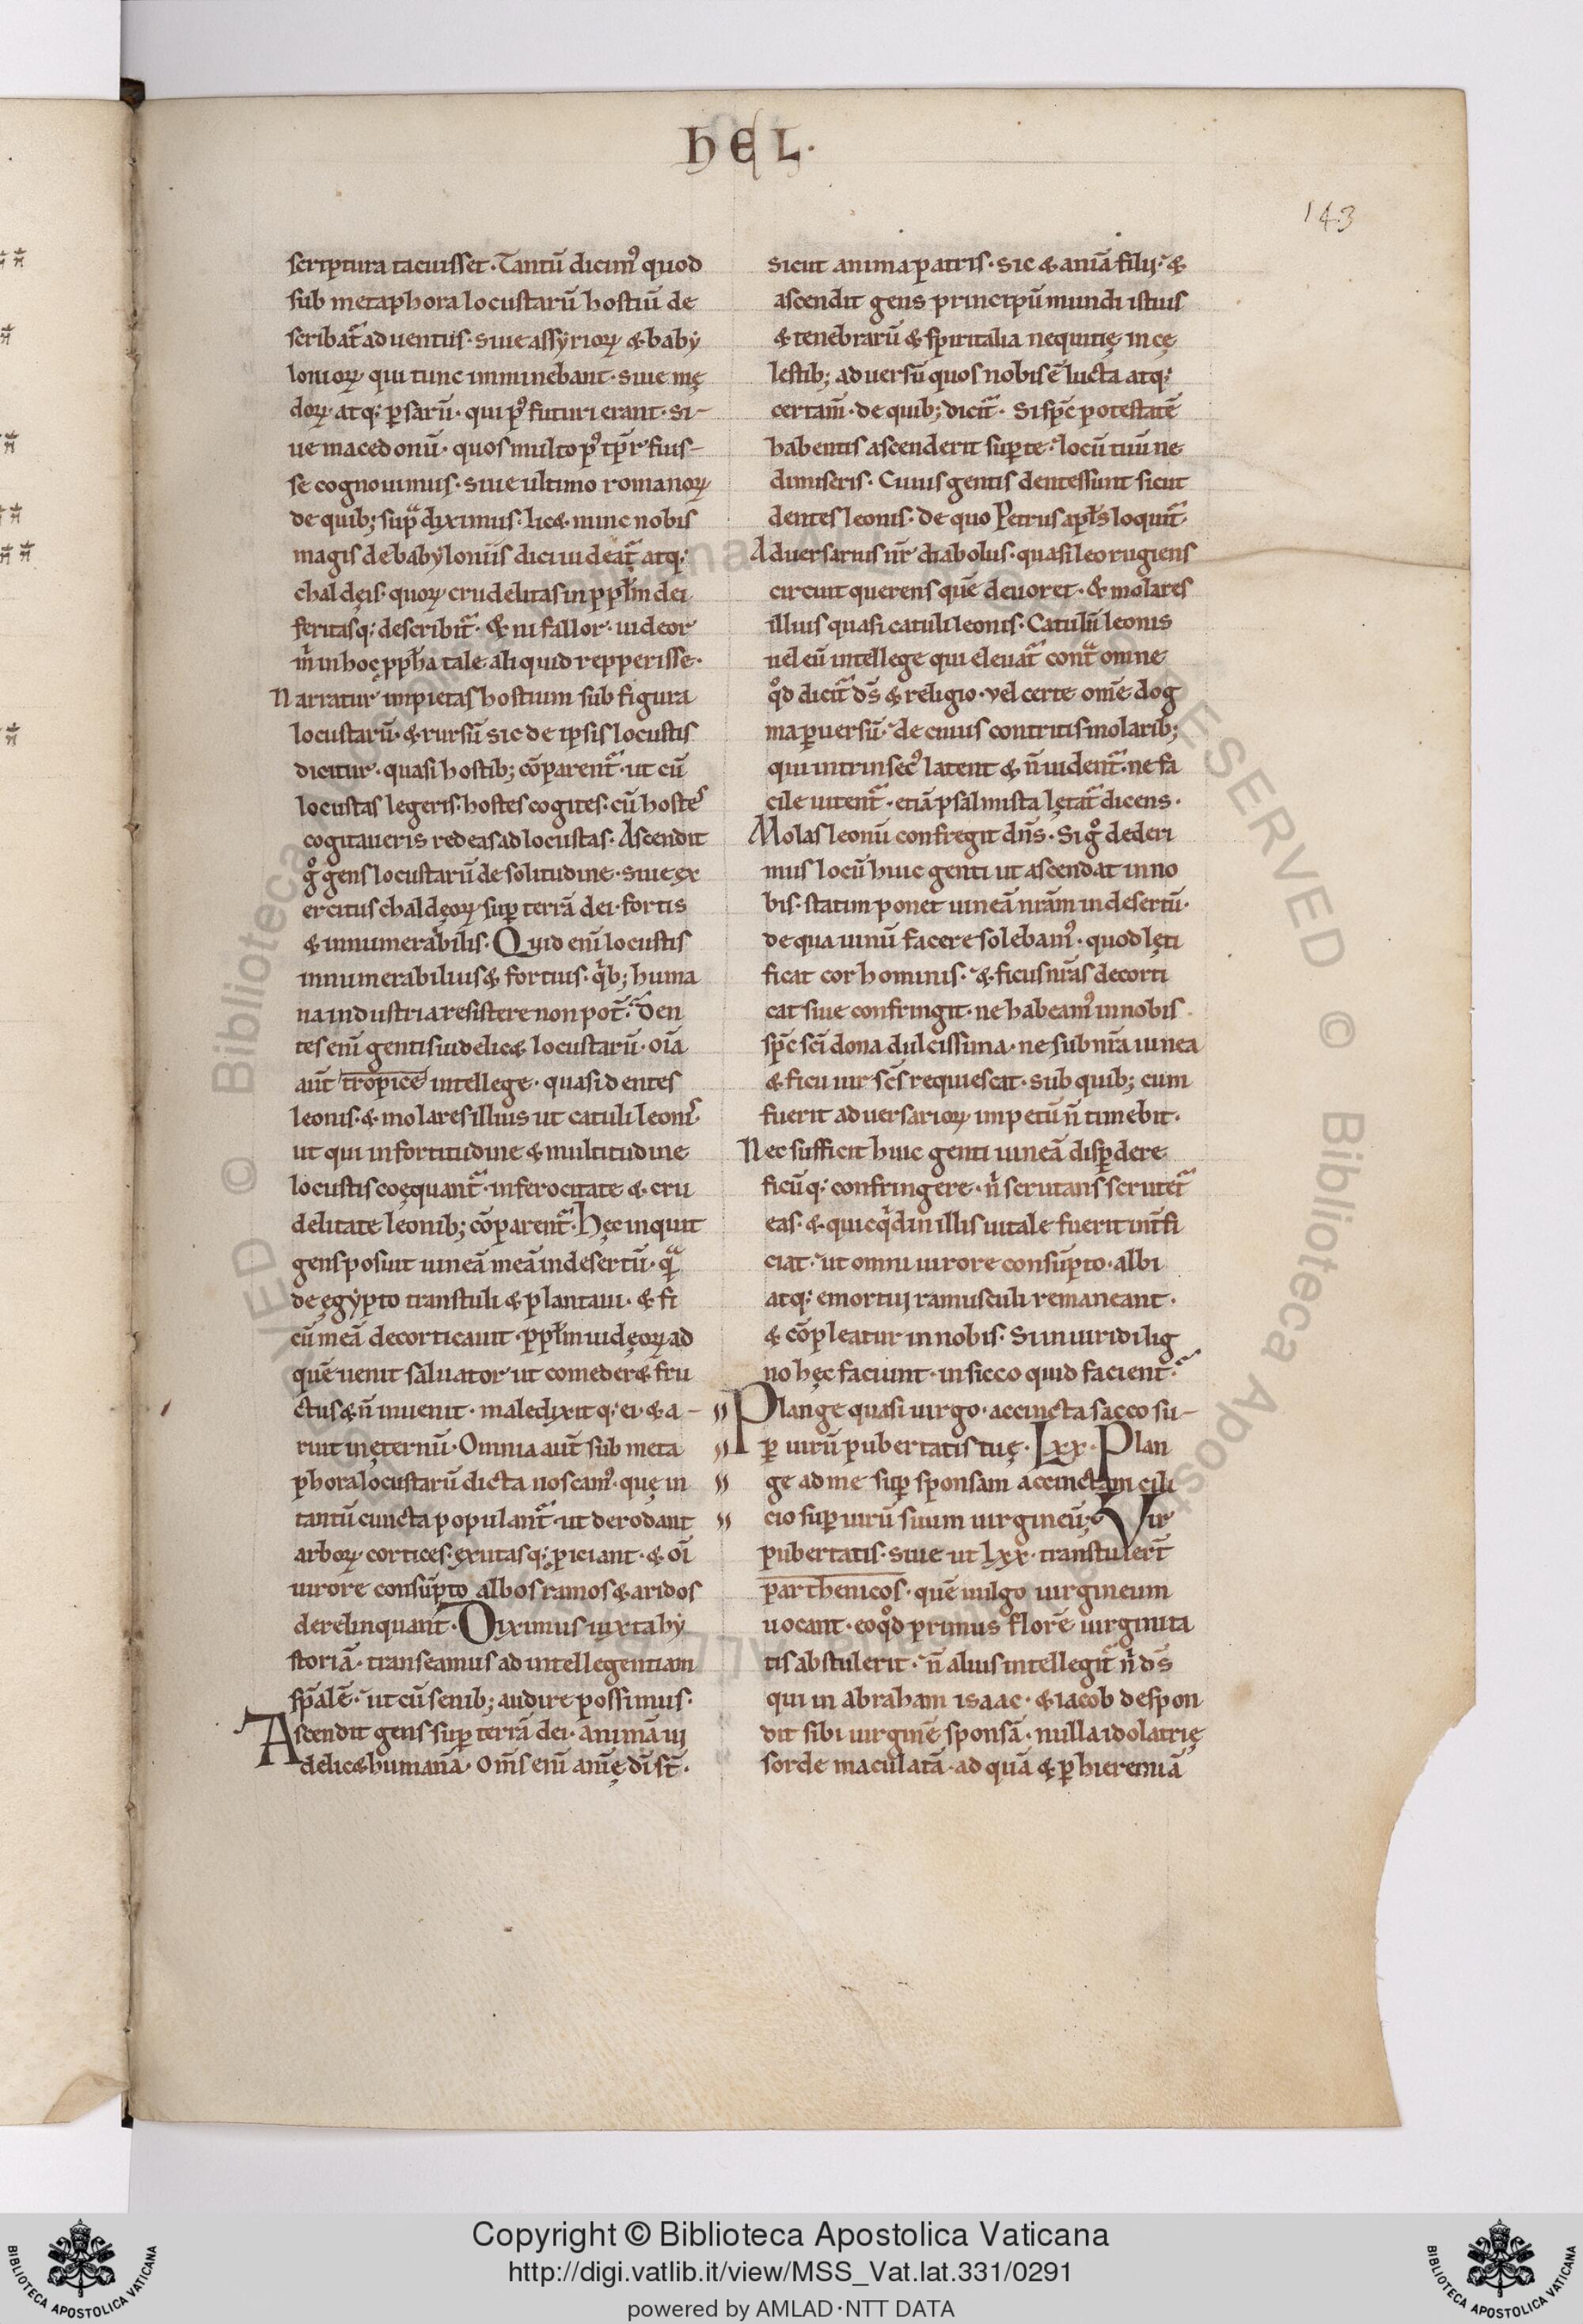 HEL·
143
scriptura tacuisset· Tantū dicim᷒ quod
sub metaphora locustarū hostiū de
scribat᷑ aduentus· siue assẏrioꝝ & babẏ
lonioꝝ qui tunc imminebant· siue mę
doꝝ· atq; ꝑsarū· qui p᷒ futuri erant· si-
ue macedonū· quos multo p᷒ tp̄r fuis-
se cognouimus· siue ultimo romanoꝝ
de quib; sup̄ diximus· lic& nunc nobis
magis de babẏloniis dici uideat᷑ atq;
chaldęis· quoꝝ crudelitas in ppłm dei
feritasq; describit᷑· & ni fallor· uideor
m̄ in hoc ppħa tale aliquid repperisse·
Narratur impietas hostium sub figura
locustarū· & rursū sic de ipsis locustis
dicitur· quasi hostib; cōparent᷑· ut cū
locustas legeris· hostes cogites· cū hostes
cogitaueris redeas ad locustas· Ascendit
g̊ gens locustarū de solitudine· siue ex
ercitus chaldęoꝝ sup̄ terrā dei· fortis
& innumerabilis· Quid eni locustis
innumerabilius & fortius· q̇b; huma
na industria resistere non pot̄· Den
tes eni gentis uidelic& locustarū· oīa
aut̄ tropice intellege· quasi dentes
leonis· & molares illius ut catuli leonis·
ut qui in fortitudine & multitudine
locustis coęquant᷑· in ferocitate & cru
delitate leonib; cōparent᷑· Hęc inquit
gens posuit uineā meā in desertū· qᷓ
de ęgẏpto transtuli & plantaui· & fi
cū meā decorticauit· ppłm iudęoꝝ ad
quē uenit saluator ut comeder& fru
ctus & n̄ inuenit· maledixitq; ei· & a-
ruit in ęternū· Omnia aut̄ sub meta
phora locustarū dicta noscam᷒· quę in
tantū cuncta populant᷑· ut derodant
arboꝝ cortices· exutasq; ꝓiciant· & oī
uirore consūpto albos ramos & aridos
derelinquant· Diximus iuxta hẏ
storiā· transeamus ad intellegentiam
sp̄alē· ut cū senib; audire possimus·
Ascendit gens sup̄ terrā dei· animā ui
delic& humanā· Om̄s eni anię dī st̄·
sicut anima patris· sic & aniā filii· &
ascendit gens principū mundi istius
& tenebrarū & spiritalia nequitię in cę
lestib; aduersū quos nobis ē lucta atq;
certam̄· de quib; dicit᷑· Si sp̄c potestatē
habentis ascenderit sup̄ te· locū tuū ne
dimiseris· Cuius gentis dentes sunt sicut
dentes leonis· de quo Petrus apłs loquit᷑·
Aduersarius nr̄ diabolus· quasi leo rugiens
circuit querens quē deuoret· & molares
illius quasi catuli leonis· Catulū leonis
uel eū intellege qui eleuat᷑ contᷓ omne
q̊d dicit᷑ ds̄ & religio· vel certe om̄e dog
ma ꝑuersū· de cuius contritis molarib;
qui intrinsec᷒ latent & n̄ uident᷑· ne fa
cile uitent᷑· etiā psalmista lętat᷑ dicens·
Molas leonū confregit dn̄s· Si g̊ dederi
mus locū huic genti ut ascendat in no
bis· statim ponet uineā nr̄am in desertū·
de qua uinū facere solebam᷒· quod lęti
ficat cor hominis· & ficus nr̄as decorti
cat siue confringit· ne habeam᷒ in nobis
sp̄c sc̄i dona dulcissima· ne sub nr̄a uinea
& ficu uir sc̄s requiescat· sub quib; cum
fuerit aduersarioꝝ impetū n̄ timebit·
Nec sufficit huic genti uineā disꝑdere
ficūq; confringere· n̄ scrutans scrutet᷑
eas· & quicq̇d in illis uitale fuerit int̄fi
ciat· ut omni uirore consūpto· albi
atq; emortui ramusculi remaneant·
& cōpleatur in nobis· Si in uiridi lig
no hęc faciunt· in sicco quid facient·
Plange quasi uirgo· accincta sacco su-
ꝑ uirū pubertatis tuę· Lxx· Plan
ge ad me sup̄ sponsam accinctam cili
cio sup̄ uirū suum uirgineū· Vir
pubertatis· siue ut Lxx· transtulert̄
parthenicos· quē uulgo uirgineum
uocant· eo q̊d primus florē uirginita
tis abstulerit· n̄ alius intellegit᷑ n̄ ds̄
qui in abraham isaac· & iacob despon
dit sibi uirginē sponsā· nulla idolatrię
sorde maculatā· ad quā & ꝑ hieremiā
Copyright © Biblioteca Apostolica Vaticana
http://digi.vatlib.it/view/MSS_Vat.lat.331/0291
powered by AMLAD·NTT DATA
BIBLIOTECA APOSTOLICA VATICANA
BIBLIOTECA APOSTOLICA VATICANA